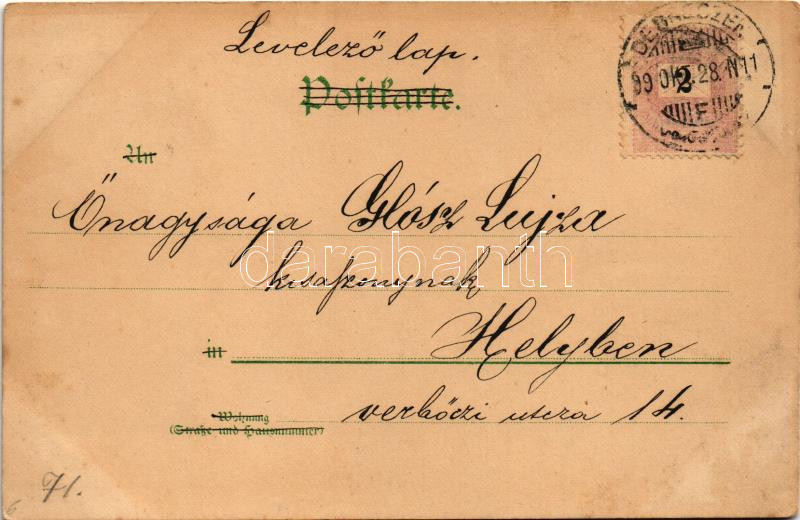 Levelező lap.
Postkarte.
DEBRECZEN
99 OKT. 28. N11
2
F
An
Őnagysága Glósz Lujza
darabanth
kisaszonynak
in Helyben
Wohnung
(Straße und Hausnummer)
verbőczi utcza 14.
71.
6